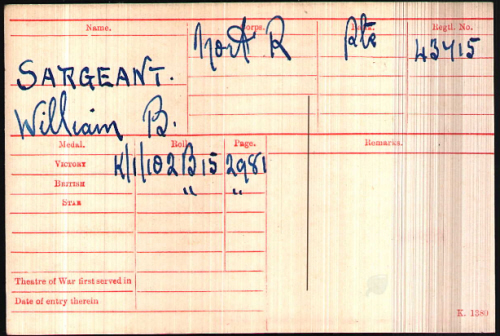 Name. Corps. Rank. Regtl. No.
SARGEANT. Nort R Pte 43415
William B.
Medal. Roll. Page. Remarks.
VICTORY K/1/102 B 15 2981
BRITISH " "
STAR
Theatre of War first served in
Date of entry therein
K. 1380